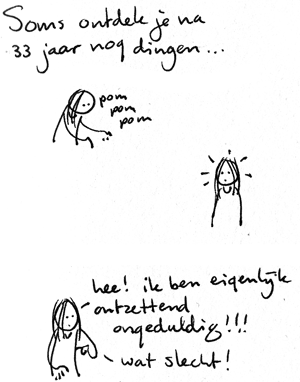 Soms ontdek je na
33 jaar nog dingen...
pom
pom
pom
hee! ik ben eigenlijk
ontzettend
ongeduldig!!!
wat slecht!